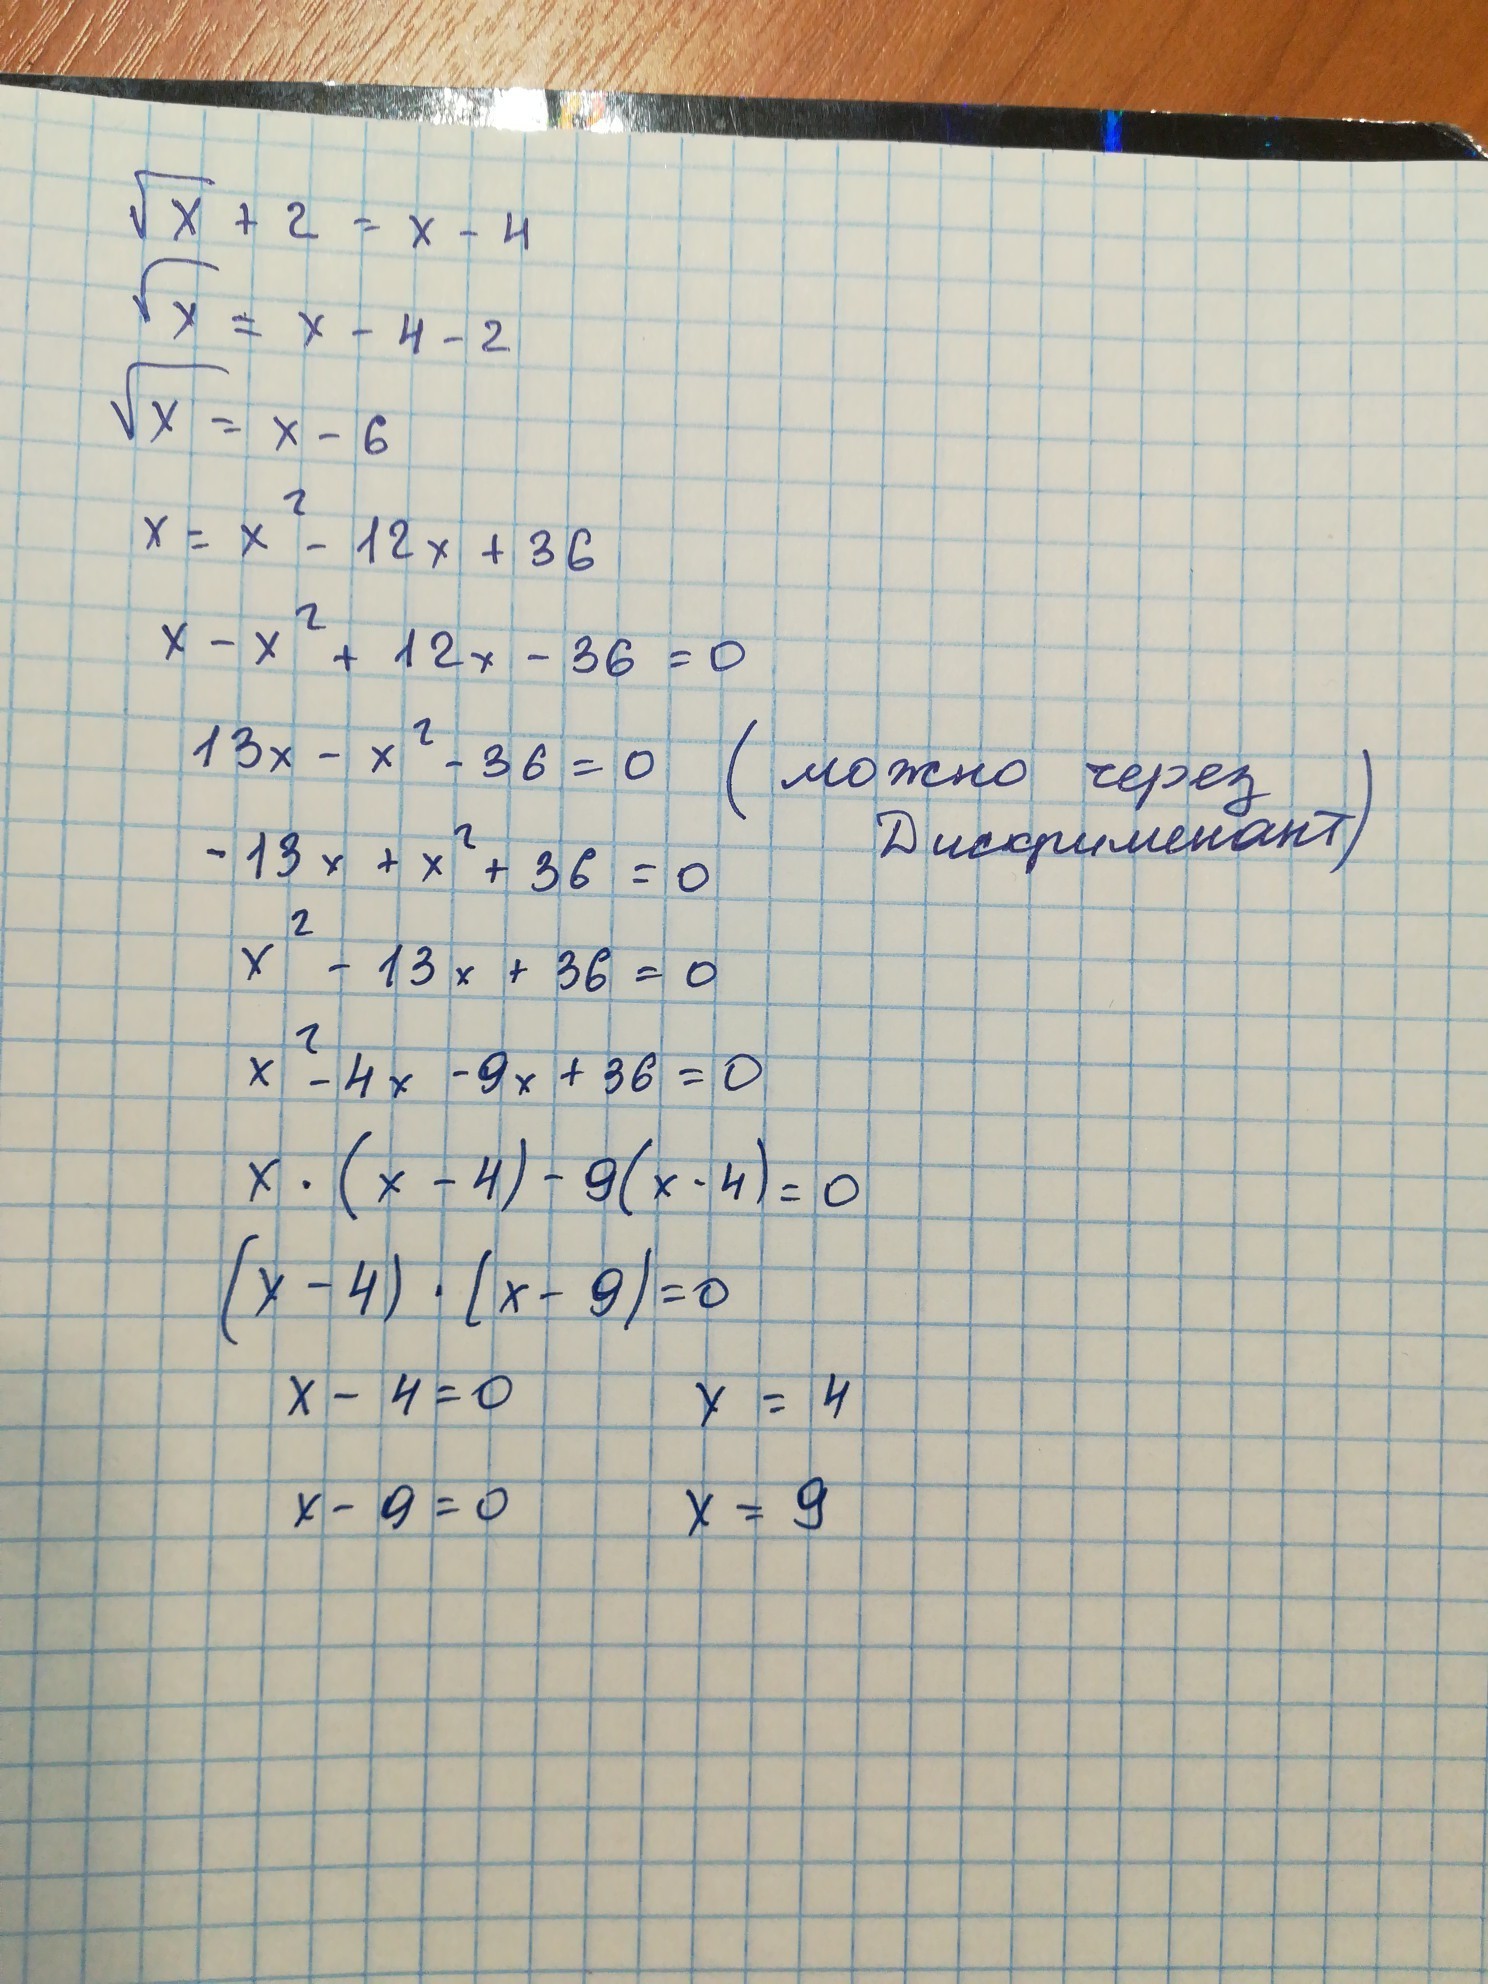 √x + 2 = x - 4
√x = x - 4 - 2
√x = x - 6
x = x² - 12x + 36
x - x² + 12x - 36 = 0
13x - x² - 36 = 0 (можно через
Дискрименант)
-13x + x² + 36 = 0
x² - 13x + 36 = 0
x² - 4x - 9x + 36 = 0
x · (x - 4) - 9(x - 4) = 0
(x - 4) · (x - 9) = 0
x - 4 = 0 x = 4
x - 9 = 0 x = 9